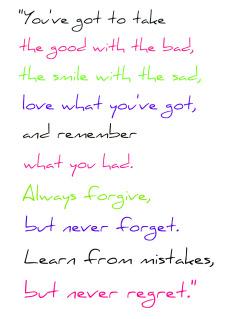 "You've got to take
the good with the bad,
the smile with the sad,
love what you've got,
and remember
what you had.
Always forgive,
but never forget.
Learn from mistakes,
but never regret."